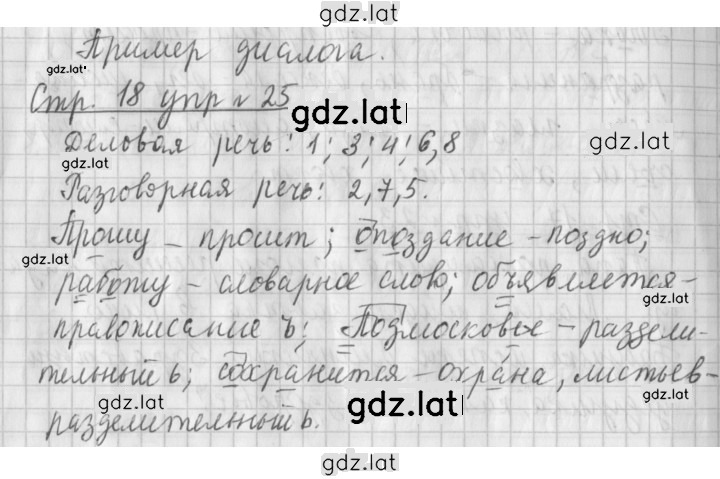 gdz.lat
Пример диалога.
gdz.lat
Стр. 18 упр № 25
gdz.lat
Деловая речь: 1; 3; 4; 6, 8
gdz.lat
gdz.lat
Разговорная речь: 2, 7, 5.
Прошу – просит; опоздание – поздно;
gdz.lat
работу – словарное слово; объявляется –
gdz.lat
правописание ъ; Подмосковье – раздели-
тельный ь; сохранится – охрана, листьев –
gdz.lat
gdz.lat
gdz.lat
разделительный ь.
gdz.lat